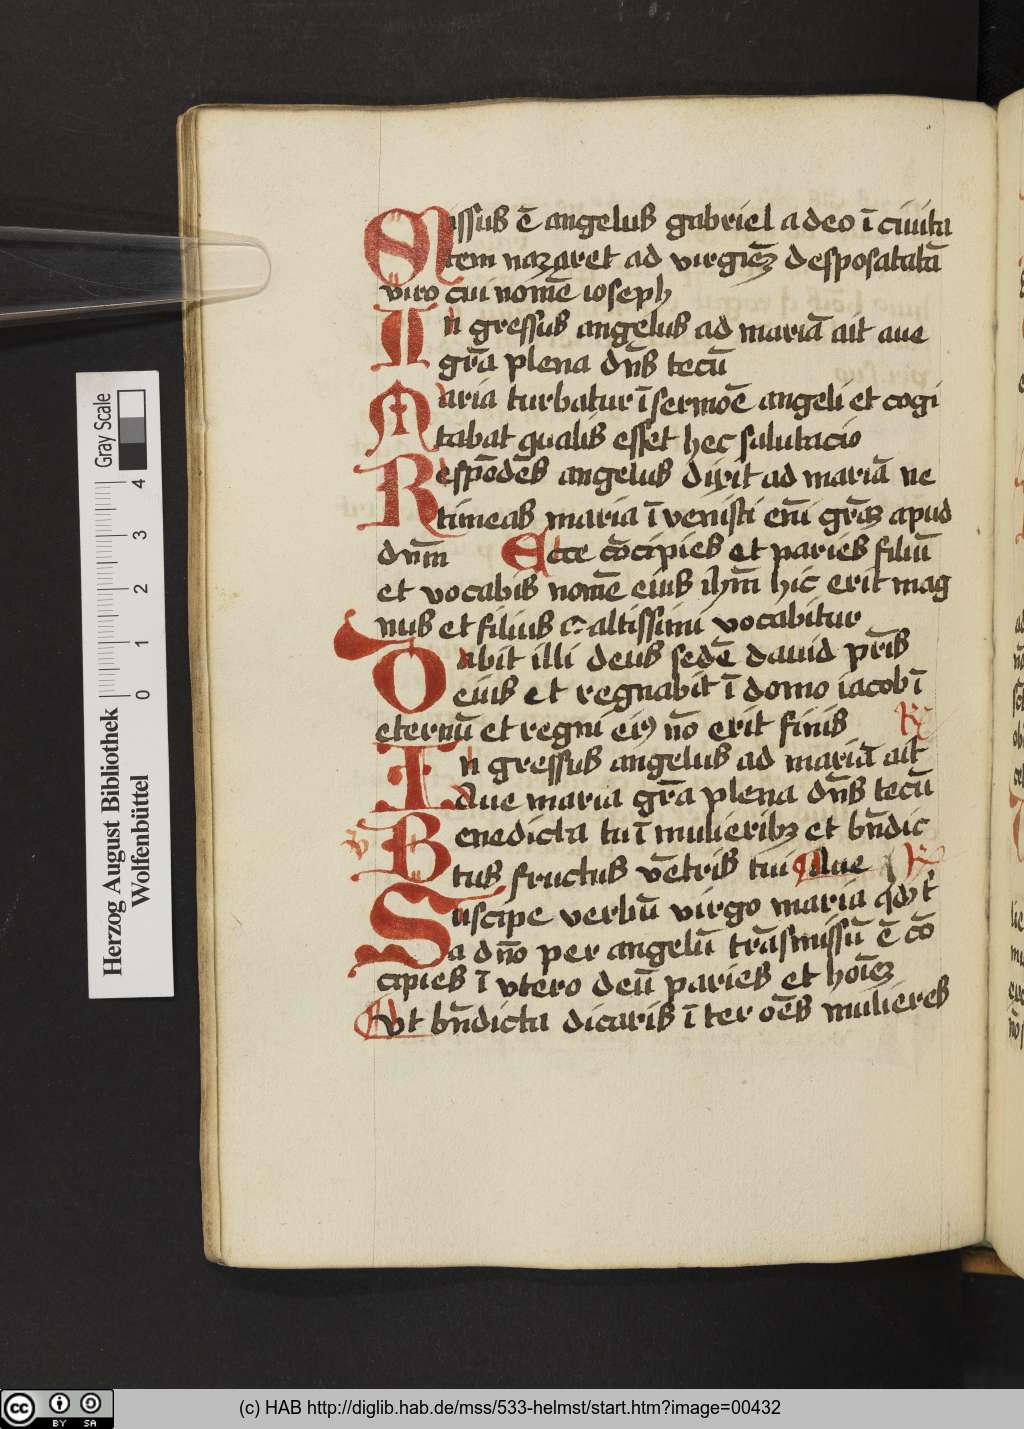 Missus ē angelus gabriel a deo ī ciuita
tem nazaret ad virgiēz desposatatā
viro cui nomē ioseph
In gressus angelus ad mariā ait aue
grā plena dn̄s tecū
Maria turbatur ī sermoē angeli et cogi
tabat qualis esset hec salutacio
Respōdēs angelus dixit ad mariā ne
timeas maria īvenisti em̄ grāz apud
dn̄m Ecce cōcipies et paries filiū
et vocabis nomē eius ihm̄ hic erit mag
nus et filius altissimi vocabitur
Dabit illi deus sedē dauid pr̄is
eius et regnabit ī domo iacob ī
eternū et regni eiꝰ nō erit finis
In gressus angelus ad mariā ait
Aue maria grā plena dn̄s tecū
Benedicta tu ī mulieribꝫ et bn̄dic
tus fructus vētris tui Aue
Suscipe verbū virgo maria
a dn̄o per angelū trāsmissū ē cō
cipies ī vtero deū paries et hoīēz
Vt bn̄dicta dicaris ī ter oēs mulieres
Gray Scale
0 1 2 3 4
Herzog August Bibliothek
Wolfenbüttel
cc BY SA
(c) HAB http://diglib.hab.de/mss/533-helmst/start.htm?image=00432